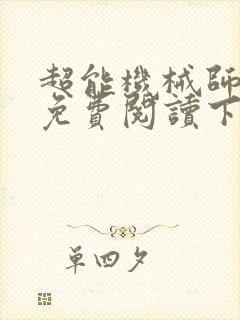 超能機械師
免費閱讀下
單四夕